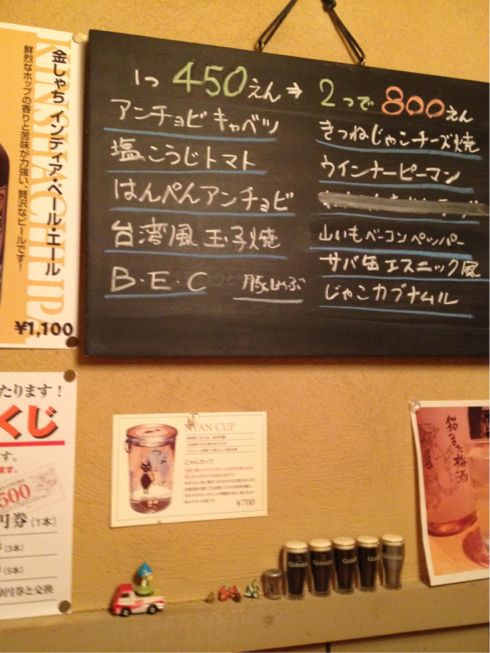 金しゃち インディア・ペール・エール
鮮烈なホップの香りと苦味が力強い、贅沢なビールです!
KINSHACHI IPA
¥1,100
1つ 450えん→2つで 800えん
アンチョビキャベツ
塩こうじトマト
はんぺんアンチョビ
台湾風玉子焼
B・E・C 豚しゃぶ
きつねじゃこチーズ焼
ウインナーピーマン
山いもベーコンペッパー
サバ缶エスニック風
じゃこカブナムル
たります!
くじ
す。
ます。
500
円券(1本)
(3本)
(5本)
円券と交換
NYAN CUP
にゃんカップ
¥700
梅酒
GUINNESS